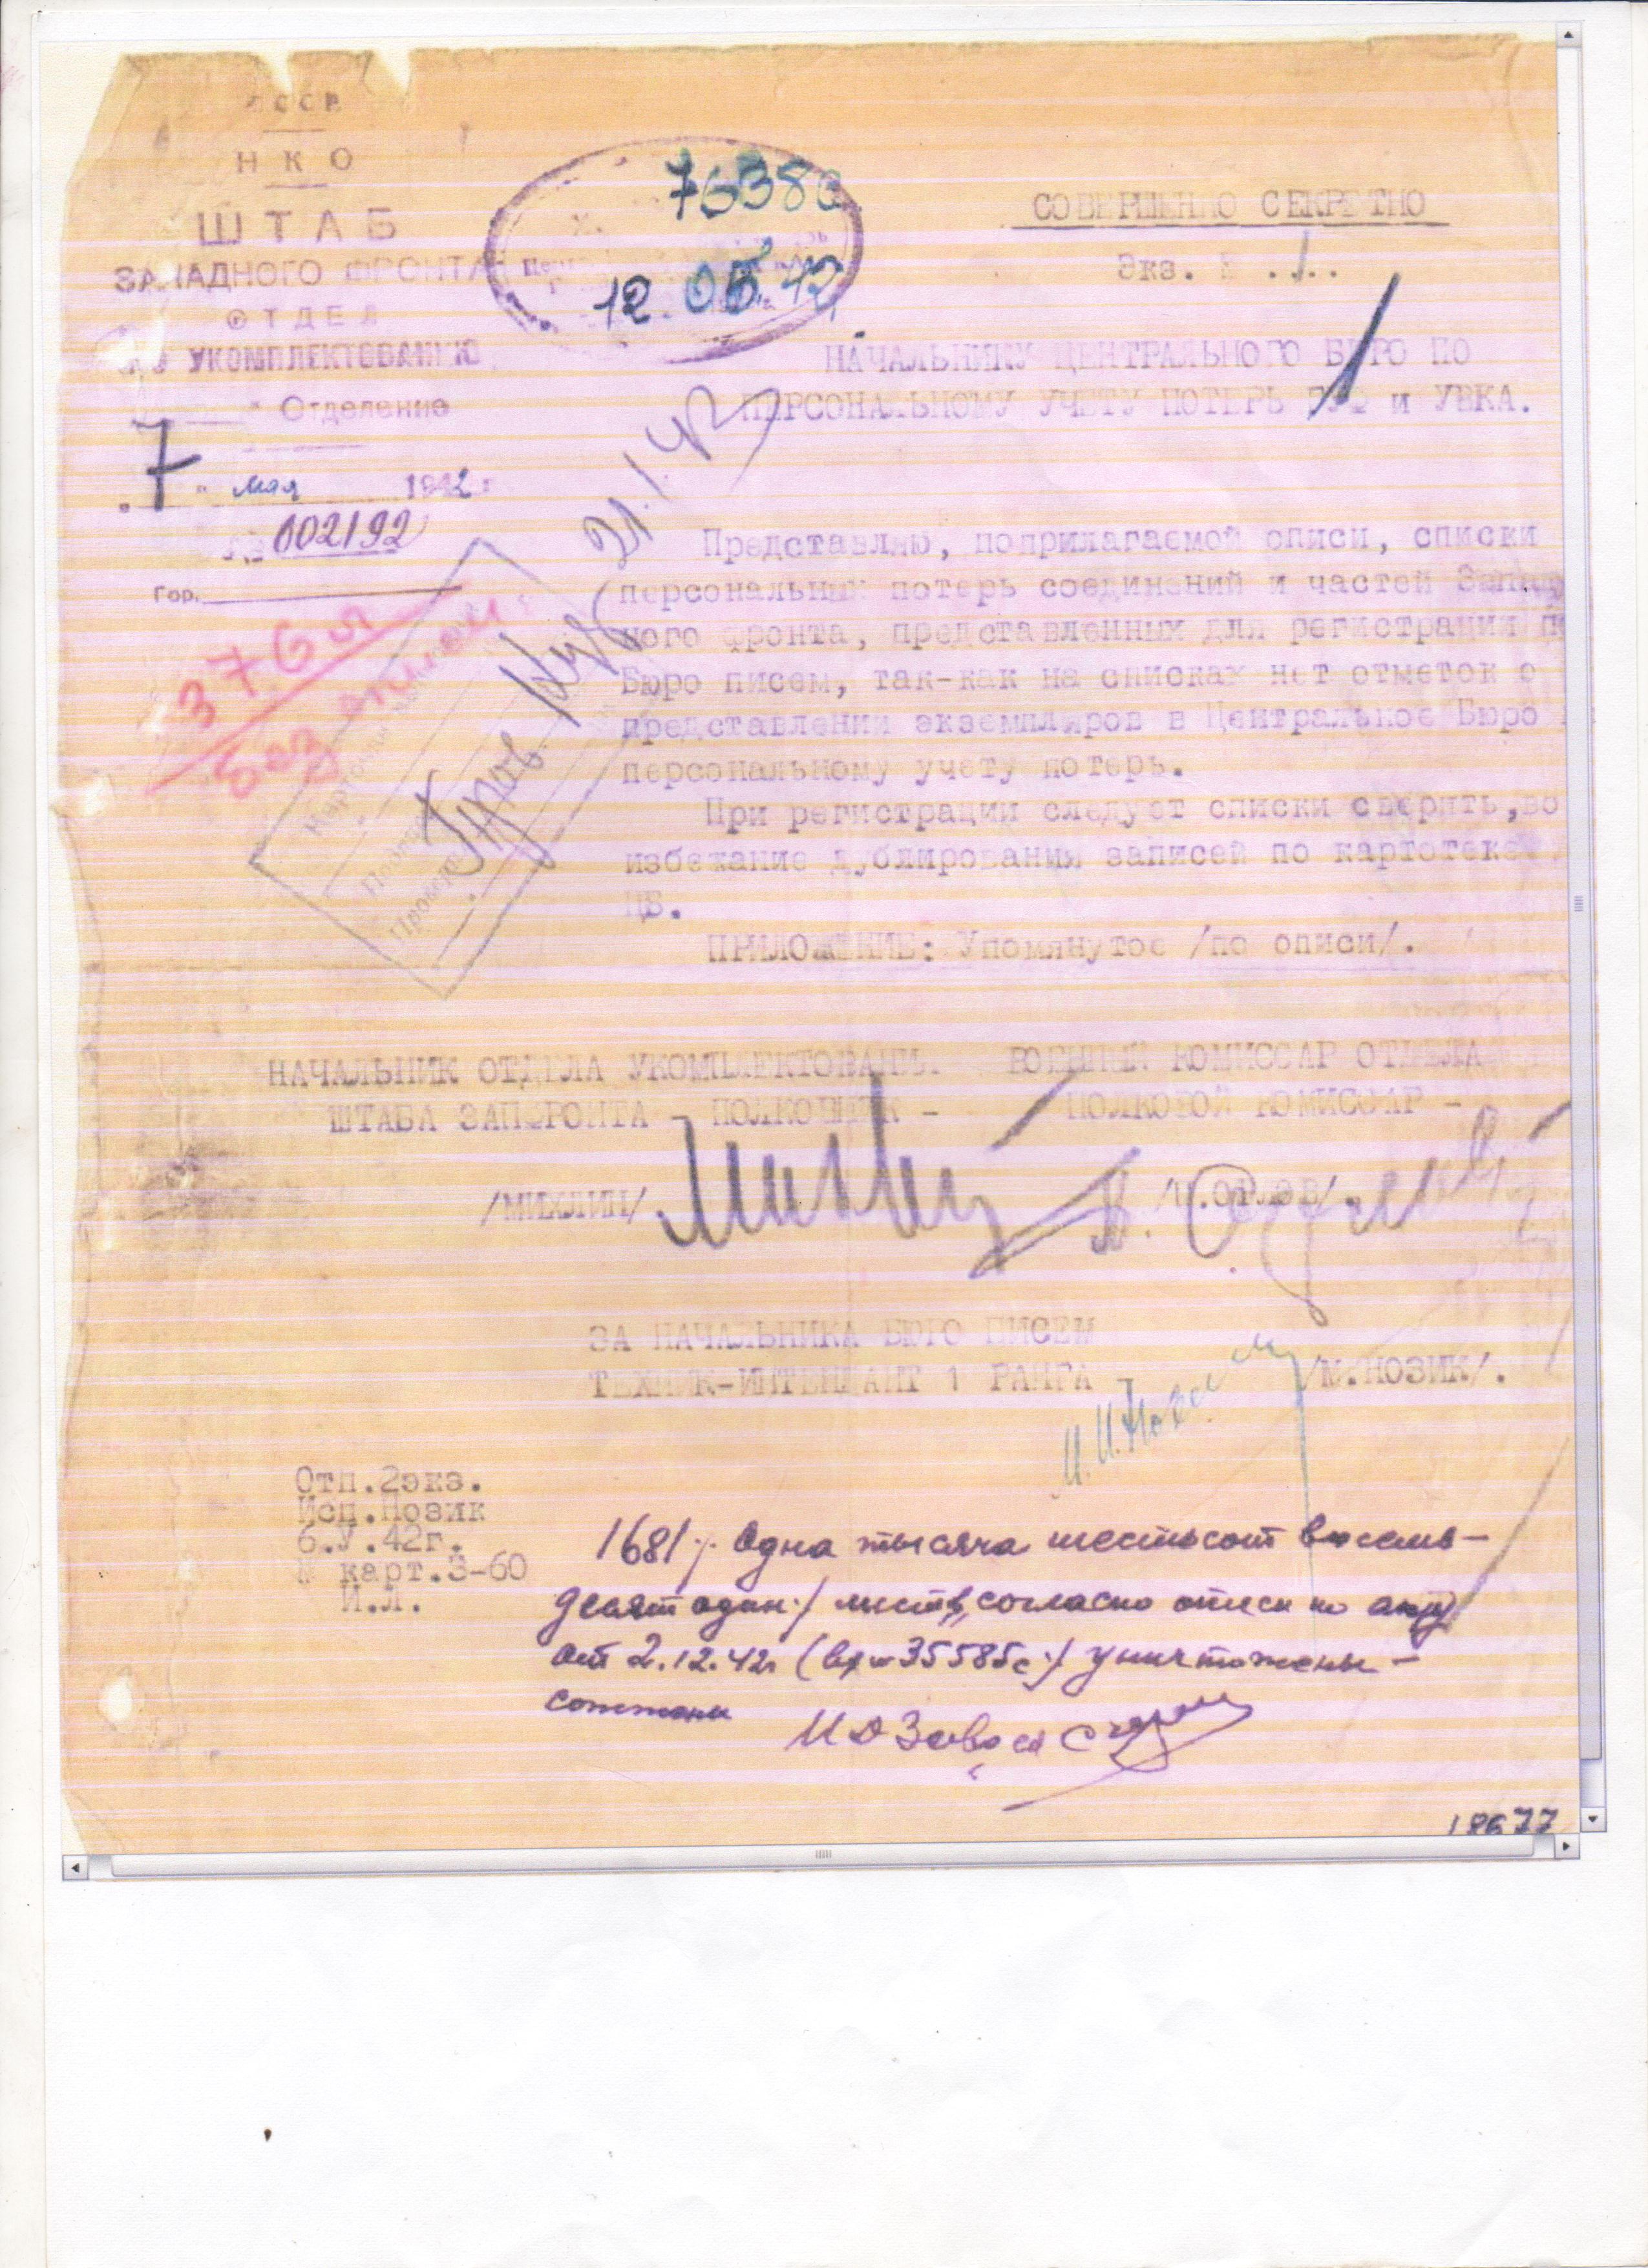 СССР
НКО
ШТАБ
ЗАПАДНОГО ФРОНТА
ОТДЕЛ
УКОМПЛЕКТОВАНИЮ
Отделение
7 мая 1942 г
№ 002192
Гор.
12 05 42
СОВЕРШЕННО СЕКРЕТНО
Экз. № .1..
НАЧАЛЬНИКУ ЦЕНТРАЛЬНОГО БЮРО ПО
ПЕРСОНАЛЬНОМУ УЧЕТУ ПОТЕРЬ ГУФ и УВКА.
21.1.43
376 л
без описи
Представляю, поприлагаемой описи, списки
персональных потерь соединений и частей Запад
ного фронта, представленных для регистрации п
Бюро писем, так-как на списках нет отметок о
представлении экземпляров в Центральное Бюро
персональному учету потерь.
При регистрации следует списки сверить,во
избежание дублирования записей по картотеке
ЦБ.
ПРИЛОЖЕНИЕ: Упомянутое /по описи/.
НАЧАЛЬНИК ОТДЕЛА УКОМПЛЕКТОВАНИЯ ВОЕННЫЙ КОМИССАР ОТДЕЛА
ШТАБА ЗАПФРОНТА - ПОЛКОВНИК - ПОЛКОВОЙ КОМИССАР -
/МИХЛИН/ /И.ОРЛОВ/
ЗА НАЧАЛЬНИКА БЮРО ПИСЕМ
ТЕХНИК-ИНТЕНДАНТ 1 РАНГА /М.НОЗИК/.
Отп.2экз.
Исп.Нозик
6.У.42г.
№ карт.3-60
И.Л.
1681 /. Одна тысяча шестьсот восемь-
десят один ./ листов, согласно описи по акту
от 2.12.42г (вх № 35585с ./ уничтожены -
сожжены
18677